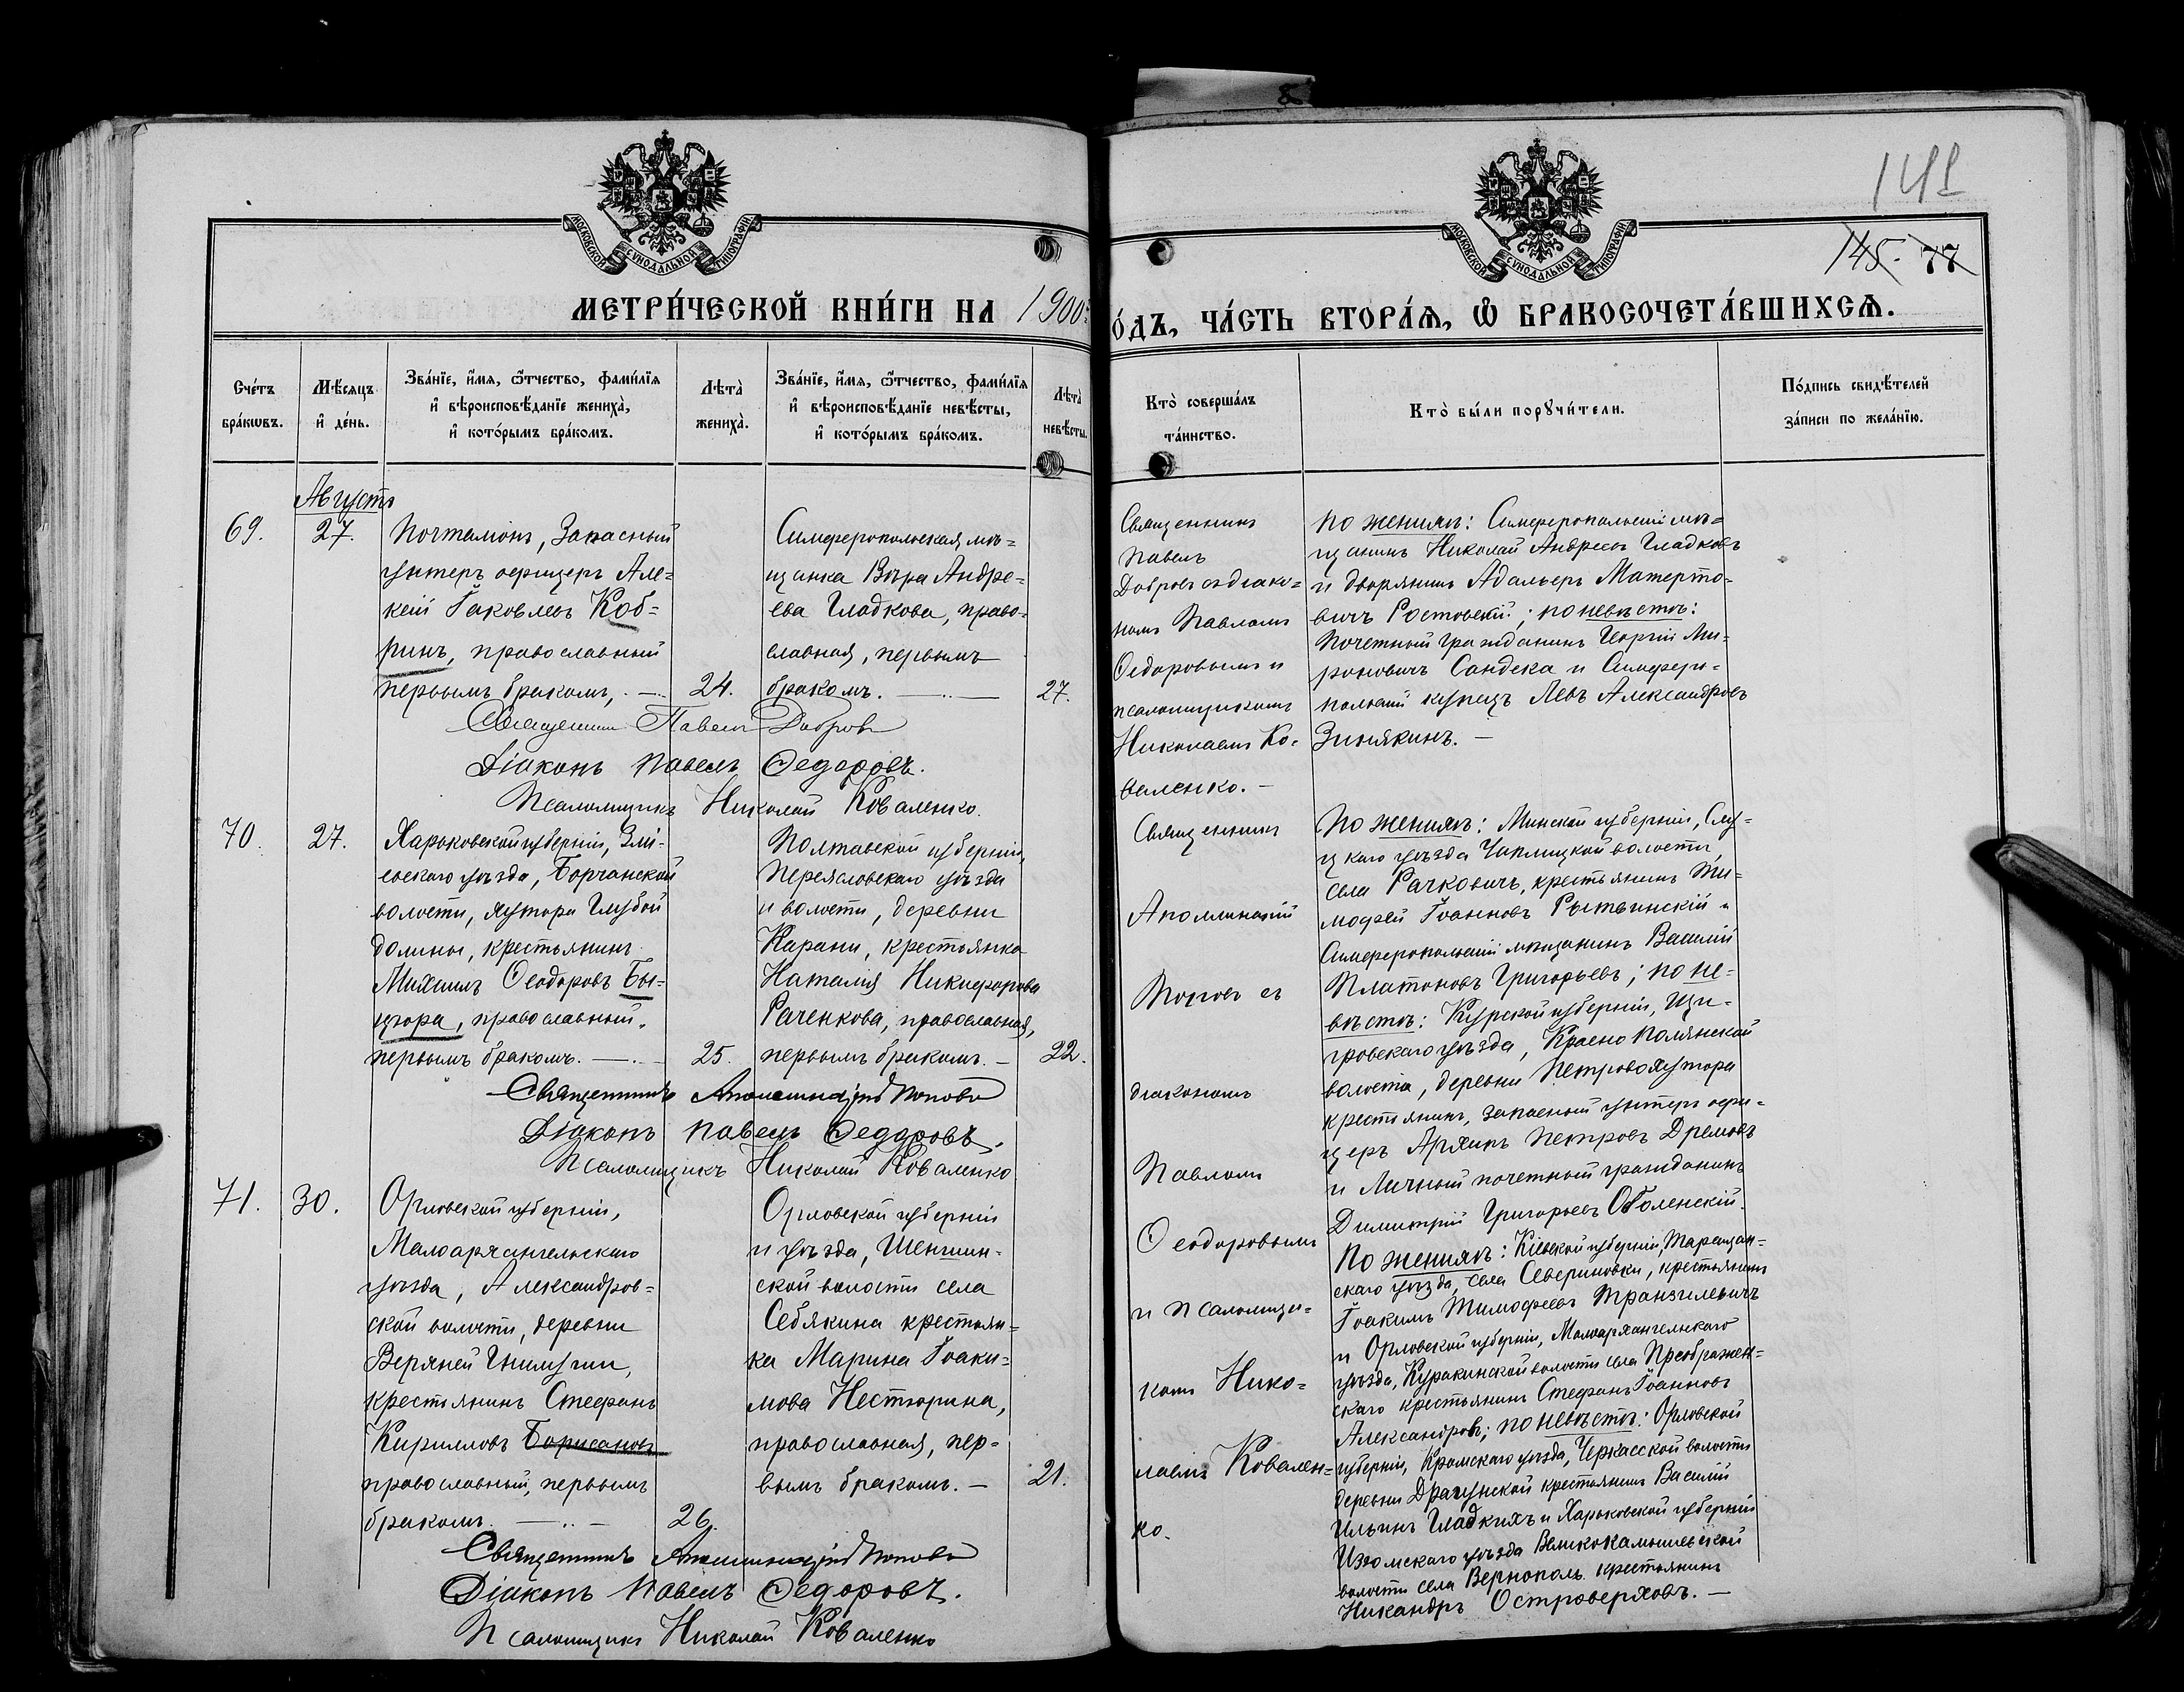 141
145. 77
МОСКОВСКОЙ СѴНОДАЛЬНОЙ ТИПОГРАФІИ
МОСКОВСКОЙ СѴНОДАЛЬНОЙ ТИПОГРАФІИ
МЕТРИ́ЧЕСКОЙ КНИ́ГИ НА 1900
О́ДЪ, ЧА́СТЬ ВТОРА́Ѧ, Ѽ БРАКОСОЧЕТА́ВШИХСѦ.
Сче́тъ
бра́кѡвъ.
Мѣ́сяцъ
и҆ де́нь.
Зва́нїе, и҆́мѧ, ѻ҆́тчество, фами́лїѧ
и҆ вѣроисповѣ́данїе жениха̀,
и҆ кото́рымъ бра́комъ.
Лѣ́та̀
жениха̀.
Зва́нїе, и҆́мѧ, ѻ҆́тчество, фами́лїѧ
и҆ вѣроисповѣ́данїе невѣ́сты,
и҆ кото́рымъ бра́комъ.
Лѣ́та̀
невѣ́сты.
Кто̀ соверша́лъ
та́инство.
Кто̀ бы́ли порꙋчи́тели.
По́дпись свидѣ́телей
за́писи по жела́нїю.
Августъ
69.
27.
Почталіонъ, Запасный
унтеръ офицеръ Але=
ксій Іаковлевъ Коб=
ринъ, православный
первымъ бракомъ,
24.
Симферопольская мѣ=
щанка Вѣра Андре=
ева Гладкова, право=
славная, первымъ
бракомъ.
27.
Священникъ
Павелъ
Добровъ съ діако=
номъ Павломъ
Ѳедоровымъ и
псаломщикомъ
Николаемъ Ко=
валенко.
По женихѣ: Симферопольскій мѣ=
щанинъ Николай Андреевъ Гладковъ
и дворянинъ Адальеръ Матерто=
вичъ Ростовскій; по невѣстѣ:
Почетный гражданинъ Георгій Ми=
роновичъ Сандека и Симферо=
польскій купецъ Левъ Александровъ
Зинякинъ.
Священникъ Павелъ Добровъ
Діаконъ Павелъ Ѳедоровъ.
Псаломщикъ Николай Коваленко.
70.
27.
Харьковской губерніи, Змі=
евскаго уѣзда, Борчанской
волости, хутора Глубой
долины, крестьянинъ
Михаилъ Ѳеодоровъ Бы=
цюра, православный,
первымъ бракомъ.
25.
Полтавской губерніи,
Переясловскаго уѣзда
и волости, деревни
Карани, крестьянка
Наталія Никифорова
Раченкова, православная,
первымъ бракомъ.
22.
Священникъ
Аполлинарій
Поповъ съ
діакономъ
Павломъ
Ѳеодоровымъ
и Псаломщи=
комъ Нико=
лаемъ Ковален=
ко.
По женихѣ: Минской губерніи, Слу=
цкаго уѣзда Чаплицкой волости,
села Рачковичъ, крестьянинъ Ти=
мофей Іоанновъ Рытвинскій и
Симферопольскій мѣщанинъ Василій
Платоновъ Григорьевъ; по не=
вѣстѣ: Курской губерніи, Щи=
гровскаго уѣзда, Краснополянской
волости, деревни Петрово хутора
крестьянинъ, запасный унтеръ офи=
церъ Архипъ Петровъ Дремовъ
и Личный почетный гражданинъ
Димитрій Григорьевъ Оболенскій.
Священникъ Аполлинарій Поповъ
Діаконъ Павелъ Ѳедоровъ.
Псаломщикъ Николай Коваленко
71.
30.
Орловской губерніи,
Малоархангельскаго
уѣзда, Александров=
ской волости, деревни
Верхней Гнилуши,
крестьянинъ Стефанъ
Кирилловъ Борисановъ
православный, первымъ
бракомъ.
26.
Орловской губерніи
и уѣзда, Шеншин=
ской волости села
Себякина крестьян=
ка Марина Іоаки=
мова Нестюрина,
православная, пер=
вымъ бракомъ.
21.
По женихѣ: Кіевской губерніи, Таращан=
скаго уѣзда, села Севериновки, крестьянинъ
Іоакимъ Тимофеевъ Транзилевичъ
и Орловской губерніи, Малоархангельскаго
уѣзда, Куракинской волости села Преображен=
скаго крестьянинъ Стефанъ Іоанновъ
Александровъ; по невѣстѣ: Орловской
губерніи, Кромскаго уѣзда, Черкасской волости
деревни Драгунской крестьянинъ Василій
Ильинъ Гладкихъ и Харьковской губерніи
Изюмскаго уѣзда Великокамышевской
волости села Вернополь крестьянинъ
Никандръ Островерховъ.
Священникъ Аполлинарій Поповъ
Діаконъ Павелъ Ѳедоровъ.
Псаломщикъ Николай Коваленко